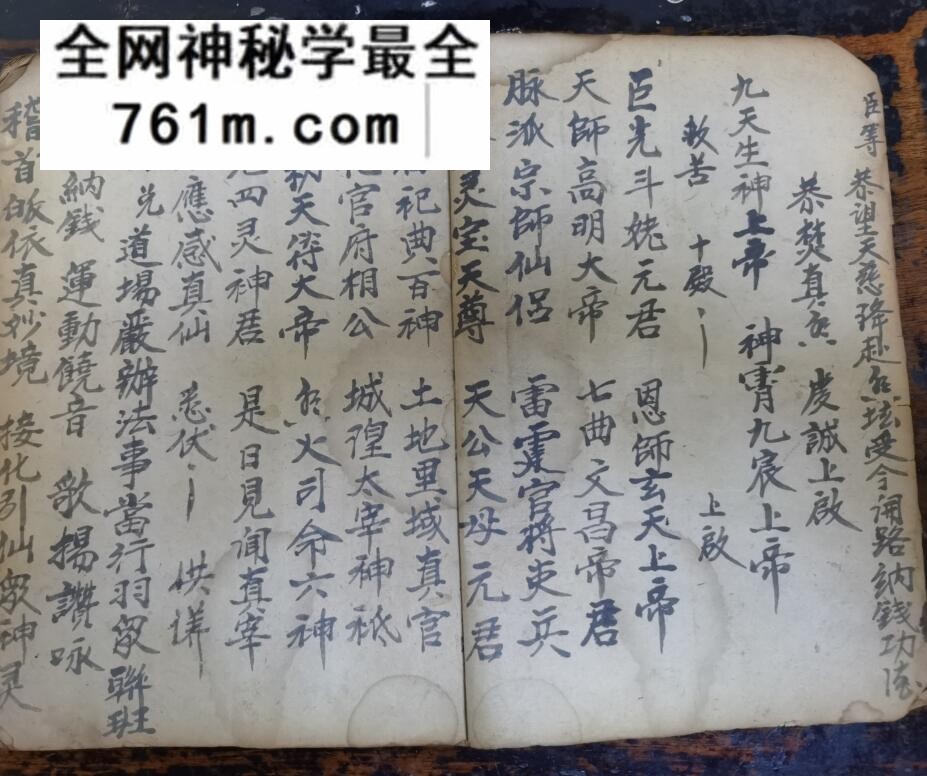 全网神秘学最全
761m.com
臣等 恭望天慈降赴 受令開路納錢功德
恭焚真香 虔誠上啟
九天生神上帝 神霄九宸上帝
救苦 十殿 上啟
巨光斗姥元君 恩師玄天上帝
天師高明大帝 七曲文昌帝君
脉派宗師仙侶 雷霆官将吏兵
灵宝天尊 天公天母元君
祀典百神 土地里域真官
官府相公 城隍太宰神祇
天符大帝 火司命六神
四灵神君 是日見闻真宰
應感真仙 悉伏 供惟
道場嚴辦法事當行羽眾聯班
納錢 運動饒音 歌揚讚咏
稽首皈依真妙境 接化引仙眾神灵